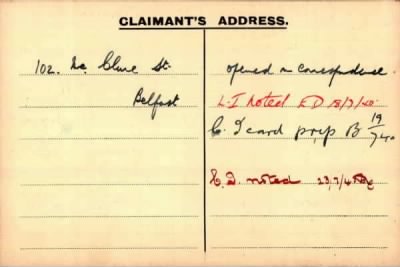 CLAIMANT'S ADDRESS.
102. Mc Clure St.
Belfast
opened on correspondence
L.I noted ED 18/7/40
C. I card prep B 19/7/40
C.I. noted 23/7/40